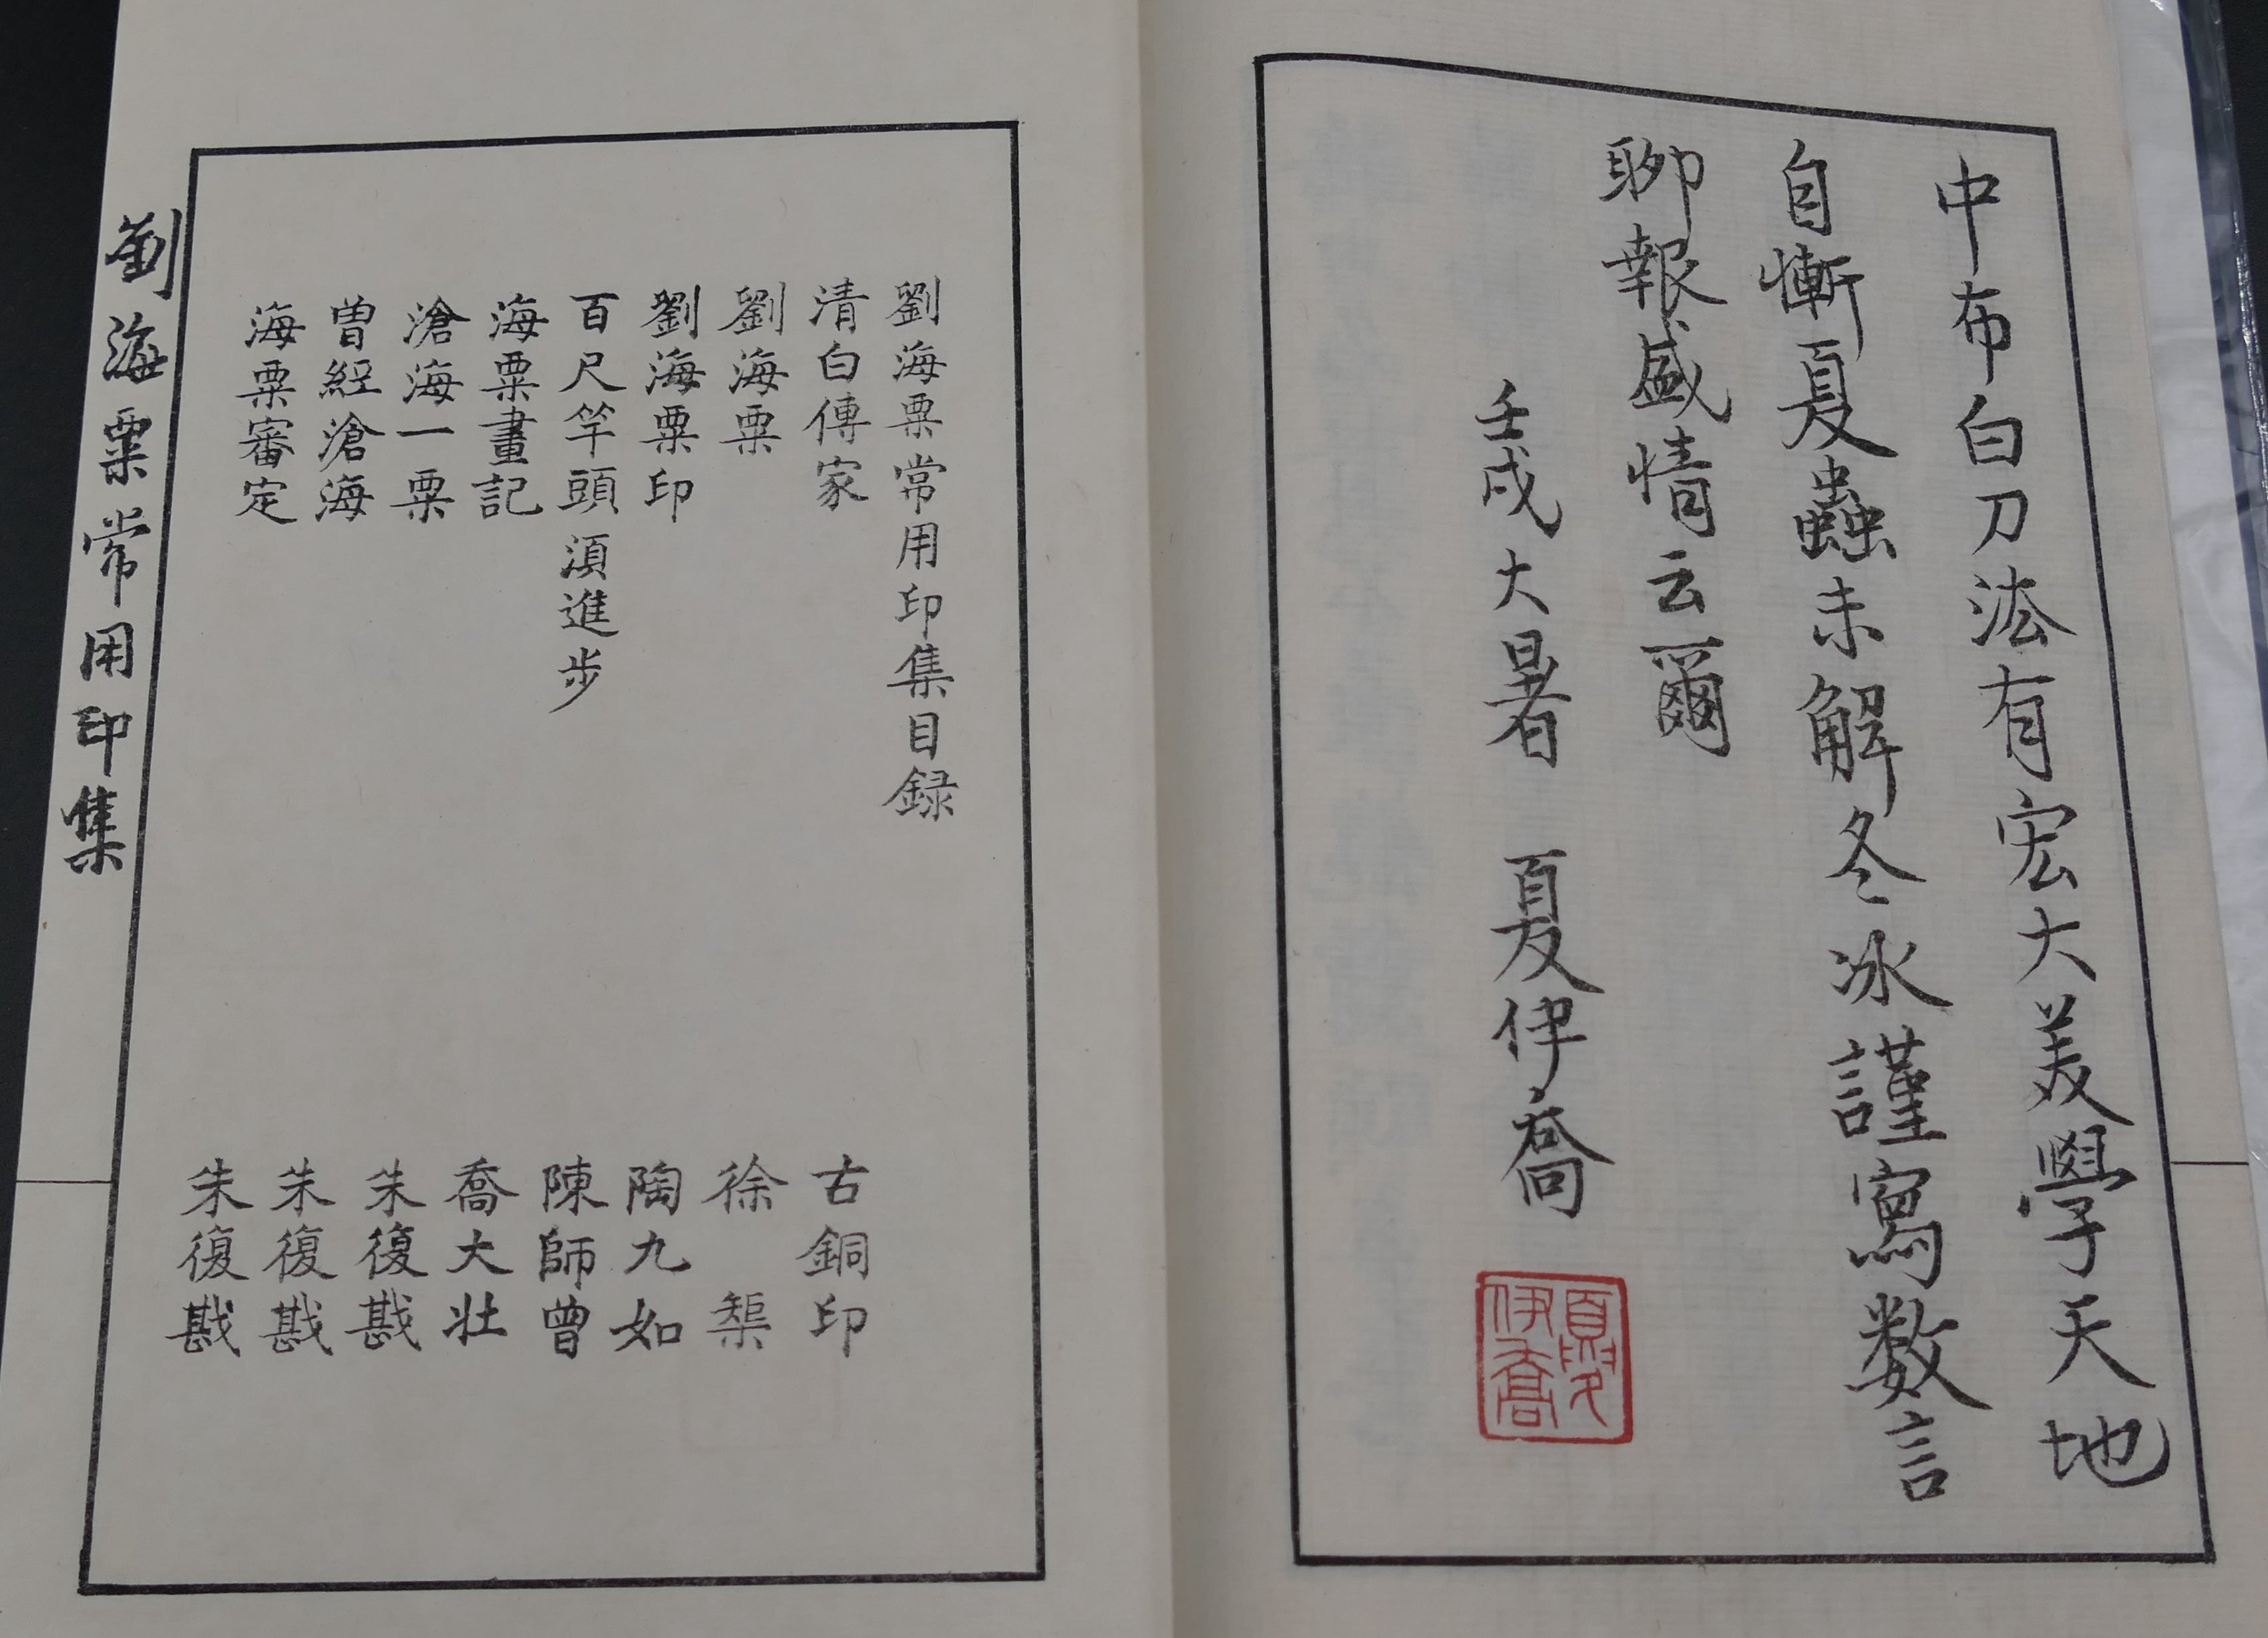 中布白刀法有宏大美學天地
自慚夏蟲未解冬冰謹寫数言
聊報盛情云爾
壬戌大暑 夏伊喬
夏伊喬
劉海粟常用印集目録
清白傳家 古銅印
劉海粟 徐
劉海粟印 陶九如
百尺竿頭須進步 陳師曾
海粟畫記 喬大壯
滄海一粟 朱復戡
曾經滄海 朱復戡
海粟審定 朱復戡
劉海粟常用印集